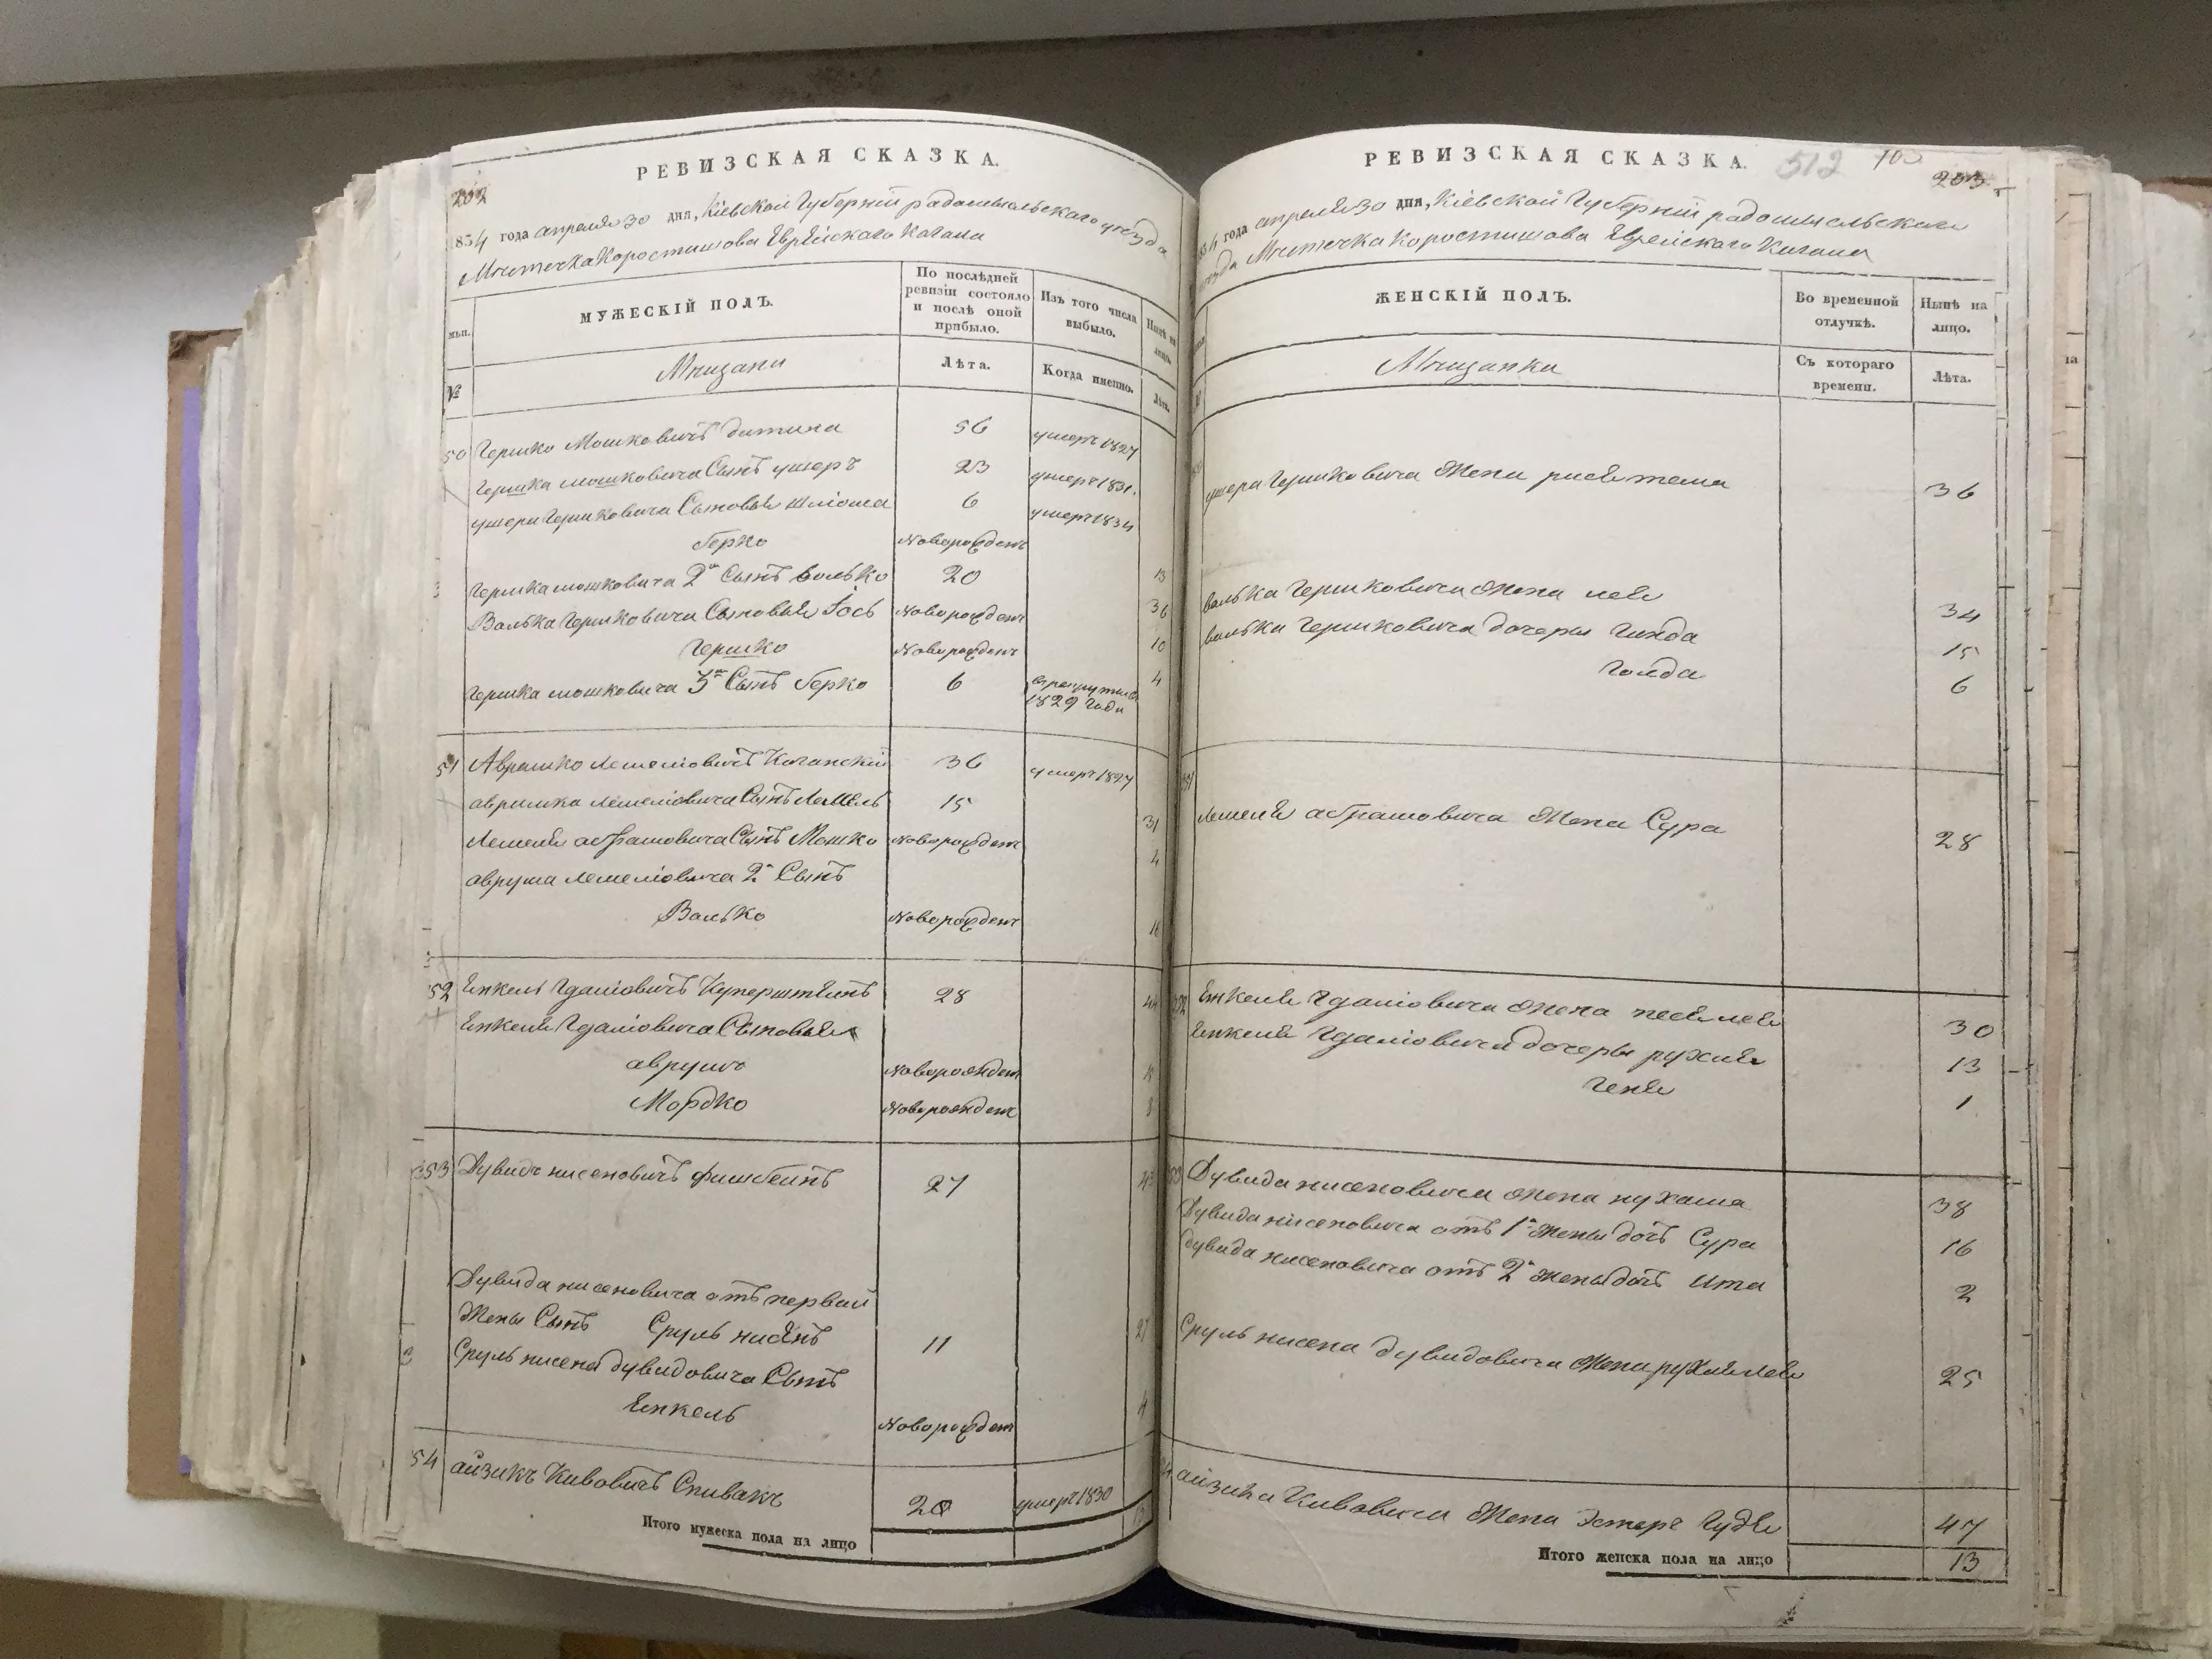 РЕВИЗСКАЯ СКАЗКА.
202
1854 года апреля 30 дня, Кіевской Губерніи радомысльского уезда
Мистечка Коростишова Еврейскаго Кагала
МУЖЕСКІЙ ПОЛЪ.
По послѣдней ревизіи состояло и послѣ оной прибыло.
Изъ того числа выбыло.
Нынѣ на лицо.
№
Мещане
Лѣта.
Когда именно.
Лѣта.
50 Гершко Мошковичъ 56 умеръ 1827
Гершка мошковича Сынъ ушеръ 23 умеръ 1831.
ушера Гершковича Сыновья шліома 6 умеръ 1834
берко Новорожден 13
Гершка мошковича 2й Сынъ волько 20 36
Волька Гершковича Сыновья Іось Новорожден 10
Гершко Новорожден 4
Гершка мошковича 3й Сынъ берко 6 1829 года
51 Аврамко Лемеліовичъ Каганскій 36 умеръ 1827
аврамка Лемеліовича Сынъ Лемель 15 31
Лемеля абрамовича Сынъ Мошко Новорожден 4
аврума лемеліовича 2й Сынъ
Волько Новорожден 16
52 Енкель Гдаліовичъ Куперштеинъ 28
Енкеля Гдаліовича Сыновья
аврумъ Новорожден
Мордко Новорожден 8
53 Дувидъ нисеновичъ фишбеинъ 27
Дувида нисеновича отъ первой
Жены Сынъ Сруль нисенъ 11 27
Сруль нисена дувидовича Сынъ
Енкель Новорожден 4
54 аизикъ Кивовичъ Спивакъ 20 умеръ 1830
Итого мужеска пола на лицо
РЕВИЗСКАЯ СКАЗКА.
512 203
года апреля 30 дня, Кіевской Губерніи радомысльского
уезда Мистечка Коростишова Еврейскаго Кагала
ЖЕНСКІЙ ПОЛЪ.
Во временной отлучкѣ.
Нынѣ на лицо.
Мещанки
Съ котораго времени.
Лѣта.
ушера Гершковича Жена 36
Волька Гершковича Жена лея 34
волька Гершковича дочеры Гинда 15
Голда 6
51 Лемеля абрамовича Жена Сура 28
52 Енкеля Гдаліовича Жена песя лея 30
Енкеля Гдаліовича дочеры рухля 13
Геня 1
53 Дувида нисеновича Жена 38
Дувида нисеновича отъ 1й Жены дочъ Сура 16
дувида нисеновича отъ 2й жены дочъ Ита 2
Сруль нисена дувидовича Жена рухля лея 25
аизика Кивовича Жена Эстеръ 47
Итого женска пола на лицо 13